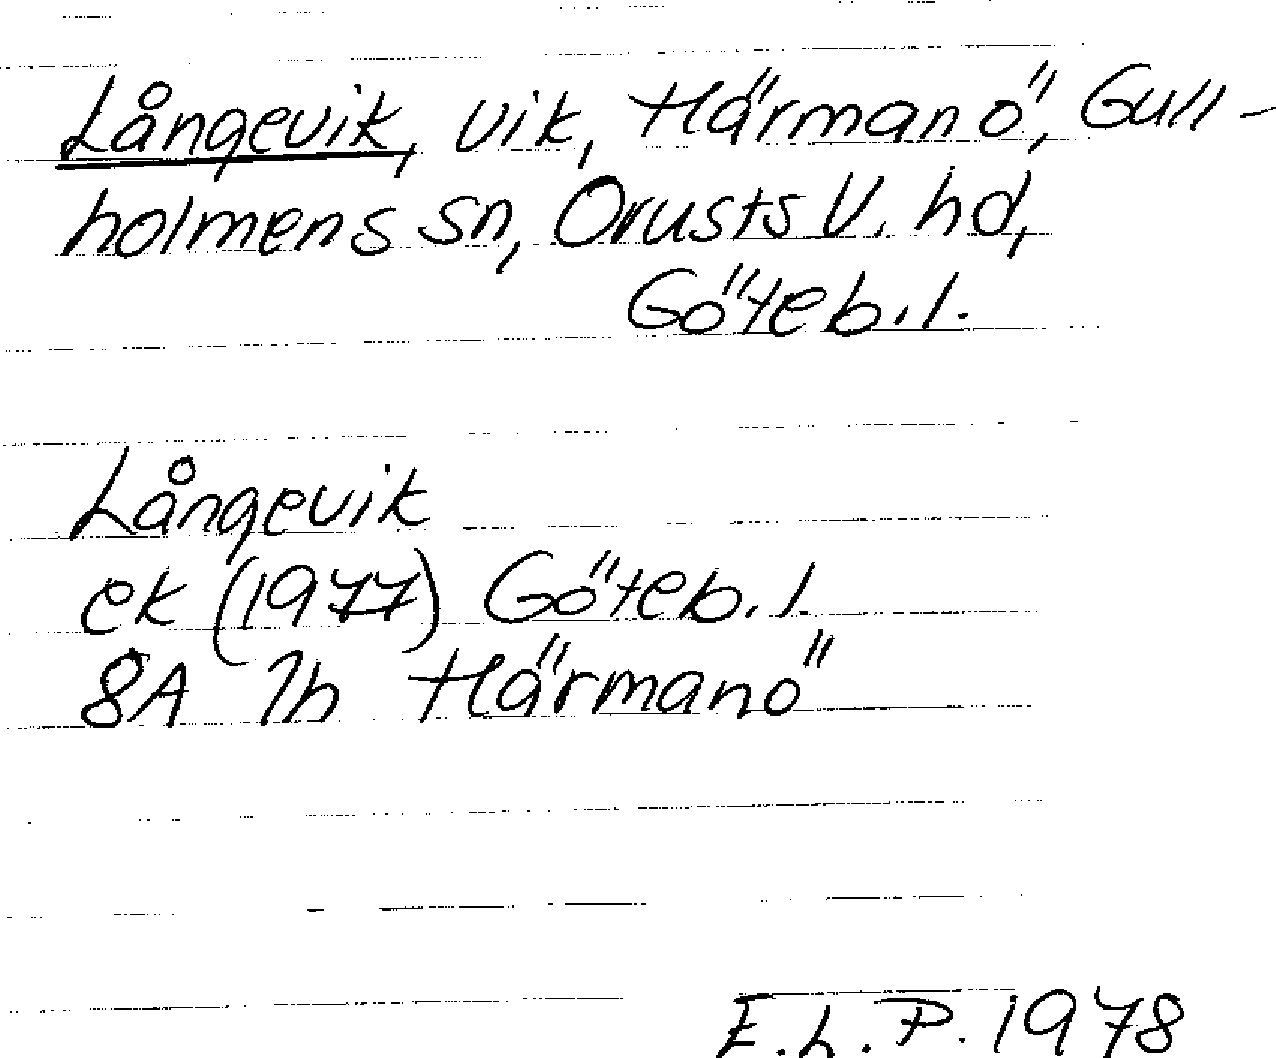 Långevik, vik, Härmanö, Gull-
holmens sn, Orusts V. hd,
Göteb. l.
Långevik
ek (1977) Göteb. l.
8A 7h Härmanö
E.L.P. 1978